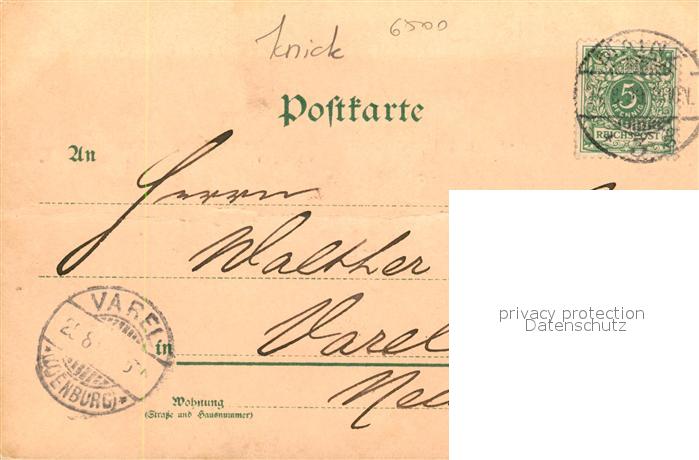 Knick 6500
Postkarte
5
REICHSPOST
An
Herrn
Walther
privacy protection
Datenschutz
VAREL
in Varel
(OLDENBURG)
Wohnung
(Straße und Hausnummer)